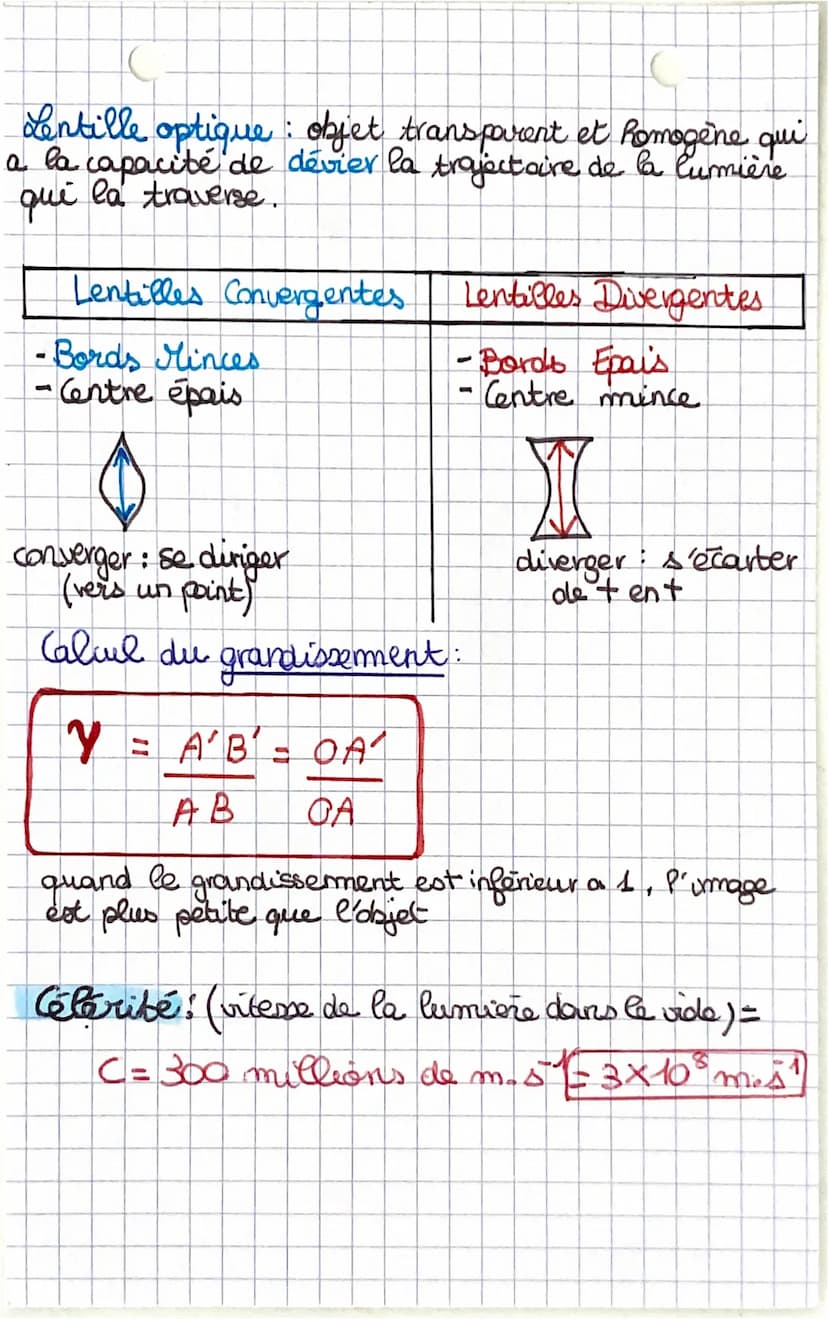 Lentille optique : objet transparent et homogène qui
a la capacité de dévier la trajectoire de la lumière
qui la traverse.
Lentilles Convergentes
- Bords Minces
- Centre épais
converger : se diriger
(vers un point)
Lentilles Divergentes
- Bords Épais
- Centre mince
diverger : s'écarter
de + en +
Calcul du grandissement :
γ = A'B' / AB = OA' / OA
quand le grandissement est inférieur a 1, l'image
est plus petite que l'objet
Célérité : (vitesse de la lumière dans le vide) =
C = 300 millions de m.s⁻¹ = 3×10⁸ m.s⁻¹